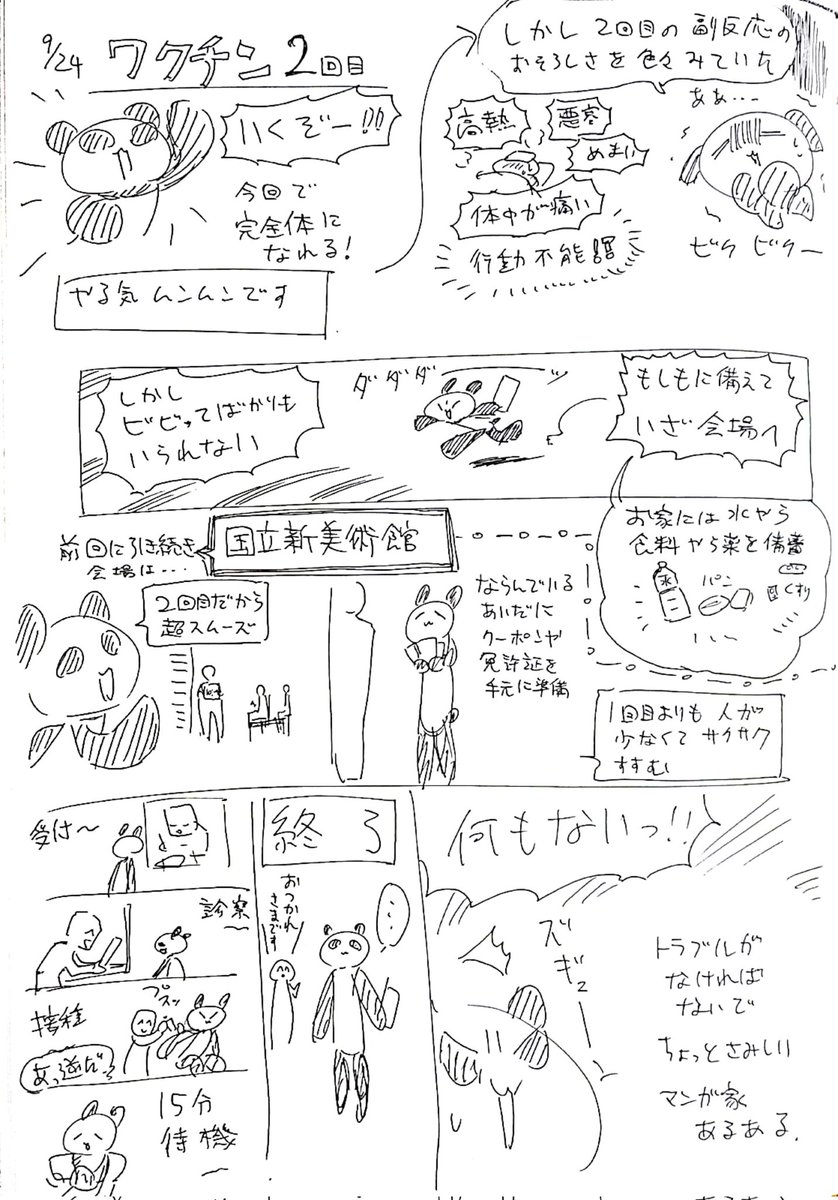 9/24 ワクチン2回目
いくぞー!!!
今回で
完全体に
なれる!
やる気ムンムンです
しかし2回目の副反応の
おそろしさを色々みていた
ああ…
高熱
悪寒
めまい
体中が痛い
行動不能
ビクビクー
しかし
ビビッてばかりも
いられない
ダダダーッ
もしもに備えて
いざ会場へ
お家には水から
食料から薬を備蓄
水
パン
くすり
前回に引き続き
会場は…
国立新美術館
2回目だから
超スムーズ
ならんでいる
あいだに
クーポンや
免許証を
手元に準備
1回目よりも人が
少なくてサクサク
すすむ
受付〜
診察〜
接種
プスッ
あっ逆だっ
15分
待機〜
終了
おつかれ
さまです
…
何もないっ!!
ズギュー
トラブルが
なければ
ないで
ちょっとさみしい
マンガ家
あるある.